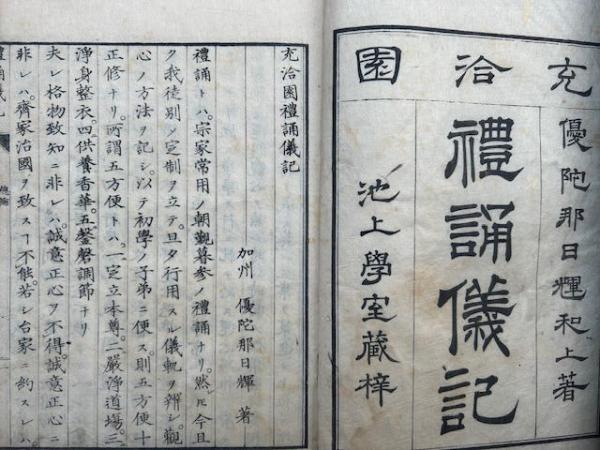 充洽園
優陀那日輝和上著
禮誦儀記
池上學室藏梓
充洽園禮誦儀記
加州 優陀那日輝 著
禮誦トハ。宗家常用ノ朝觀暮參ノ禮誦ナリ。然ルニ今且
ク我徒別ノ定制ヲ立テ。旦夕行用スル儀軌ヲ辨シ。觀
心ノ方法ヲ記シ。以テ初學ノ子弟ニ便ス。則五方便十
正修ナリ。所謂五方便トハ。一定立本尊。二嚴淨道場。三
淨身整衣。四供養香華。五鏧磬調節ナリ
夫レ格物致知ニ非レハ。誠意正心ヲ不得。誠意正心ニ
非レハ。齊家治國ヲ致スヿ不能。若シ台家ニ約スレハ。